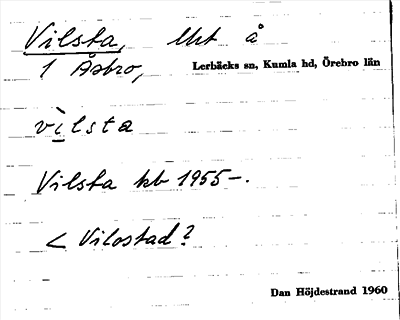 Vilsta, lht å
1 Åsbro, Lerbäcks sn, Kumla hd, Örebro län
vìlsta
Vilsta kb 1955–.
< Vilostad?
Dan Höjdestrand 1960